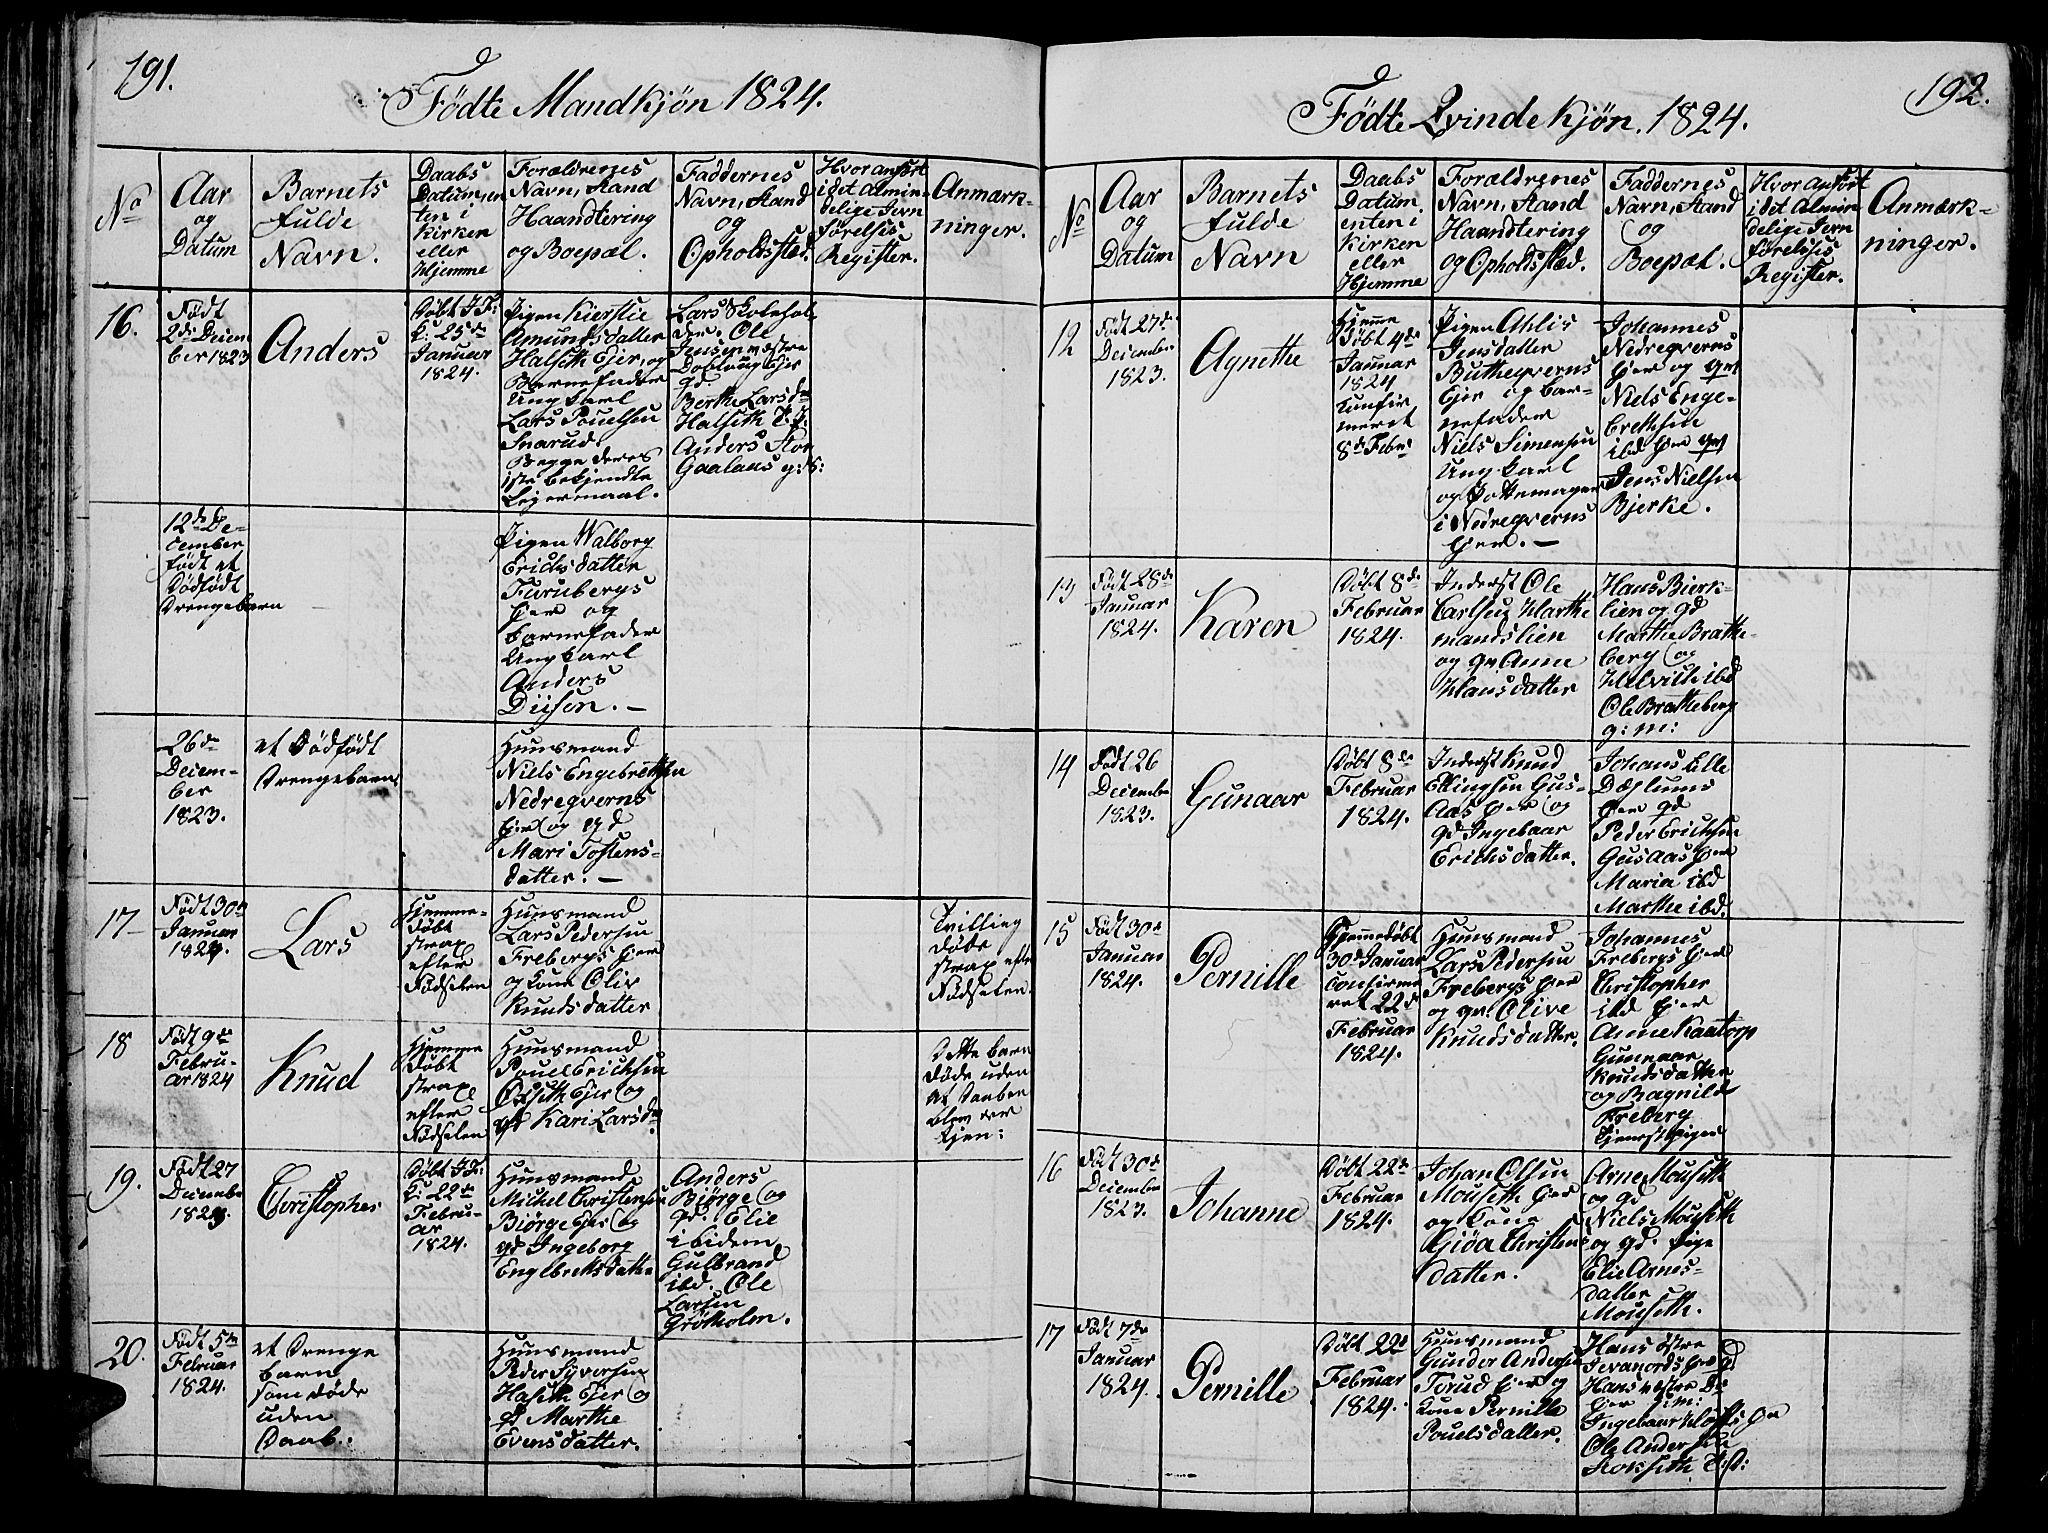 191.
Fødte Mandkjøn 1824.
No
Aar
og
Datum
Barnets
fulde
Navn.
Daabs
Datum, en
ten i
Kirken
eller
Hjemme
Forældrenes
Navn, Stand
Haandtering
og Boepæl.
Faddernes
Navn, Stand
og
Opholdssted.
Hvor anført
i det Almin-
delige Jevn
førelses
Register.
Anmærk-
ninger.
16.
Født
2de Decem
ber 1823
Anders
Døbt I F:
K: 25de
Januar
1824.
Pigen Kierstie
Amundsdatter
Halseth Eier og
Barnefader
Ungkarl
Lars Pouelsen
Snarud.
Begge deres
1ste bekjendte
Leiermaal.
Lars Skolehol-
der. Ole
Jensen vestre
Eier
qd
Berthe Larsdr
Halseth T. P.
Anders Stor
Gaalaas g: K:
12de De-
cember
født et
Dødfødt
Drengebarn
Pigen Walborg
Erichsdatter
Furubergs
Eier og
barnefader
Ungkarl
Anders
Deisen. —
26de
Decem-
ber
1823.
et Dødfødt
Drengebarn
Huusmand
Niels Engebrethsen
Nedregverns
Eier og qd
Mari Tostens-
datter. —
17
Født 30te
Januar
1824
Lars
Hjemme-
døbt
strax
efter
Fødselen
Huusmand
Lars Pedersen
Frebergs Eier
og kone Oliv
Knudsdatter
Tvilling
døde
strax efter
Fødselen.
18
Født 9de
Febru-
ar 1824
Knud
Hjemme
Døbt
strax
efter
Fødselen
Huusmand
Pouel Erichsen
Eier og
qd Kari Larsdr.
Dette barn
døde uden
at Daaben
blev
kjen:
19.
Født 27
December
1823.
Christopher
Døbt I F:
K: 22de
Febru-
ar
1824.
Huusmand
Michel Christensen
Biørge Eier og
qd Ingeborg
Englbretsdatter
Anders
Biørge og
qd. Elie
ibidem
Gulbrand
ibd. Ole
Larsen
Grøtholm.
20.
Født 5te
Februar
1824.
et Drenge
barn
som døde
uden
Daab.
Huusmand
Peder Syversen
Halseth Eier og
qd Marthe
Evensdatter.
192.
Fødte Qvindekjøn. 1824.
No
Aar
og
Datum
Barnets
fulde
Navn
Daabs
Datum
enten i
Kirken
eller
Hjemme
Forældrenes
Navn, Stand
Haandtering
og Opholdssted.
Faddernes
Navn, Stand
og
Boepæl.
Hvor Anført
i det Almin
delige Jevn
førelses
Register.
Anmærk-
ninger.
12
Født 27de
December
1823.
Agnethe
Hjemme
Døbt 4de
Januar
1824
Confir
meret
8de Febr
Pigen Ahlis
Jensdatter
Buthegverns
Eier og Bar-
nefader
Niels Simensen
Ungkarl
og Pottemager
i Nedregverns
Eier. —
Johannes
Nedregverns
Eier og qv
Niels Enge-
brethsen
ibd Eier qv
Jens Nielsen
Bjerke.
13
Født 28de
Januar
1824.
Karen
Døbt 8de
Februar
1824.
Inderst Ole
Carlsen Marthe
mandslien
og qv Anne
Hansdatter
Hans Bierk-
lien og qd
Marthe Brathe-
berg og
ibd
Ole Bratteberg
g: m:
14
Født 26
December
1823.
Gunaar
Døbt 8de
Februar
1824.
Inderst Knud
Ellingsen Gus-
Aas Eier og
qd Ingebaar
Erichsdatter.
Johans Elle
Dæhlums
Eier qd
Peder Erichsen
Gusaas Eier
Maria ibd
Marthe ibd.
15
Født 30te
Januar
1824.
Pernille
Hjemmedøbt
30te Januar
Confirme
ret 22de
Februar
1824.
Huusmand
Lars Pedersen
Frebergs Eier
og qv. Olive
Knudsdatter.
Johannes
Frebergs Eier
Christopher
ibd Eier
Anne Kaatorp
Gunnaar
Knudsdatter
og Ragnild
Freberg
tjenestpiger
16
Født 30te
December
1823.
Johanne
Døbt 22de
Februar
1824.
Johan Olsen
Mouseth Eier
og kone
Giøa Christens
datter.
Arne Mouseth
og qd
Niels Mouseth
og qd. Pige
Elie Arnes-
datter
Mouseth.
17
Født 7de
Januar
1824.
Pernille
Døbt 22de
Februar
1824.
Huusmand
Gunder Andersen
Torud Eier og
kone Pernille
Pouelsdatter.
Hans østre
Jevanords Eier qd
Hans vestre Do
Eier g: m:
Ingebaar
Ole Andersen
Stokseth